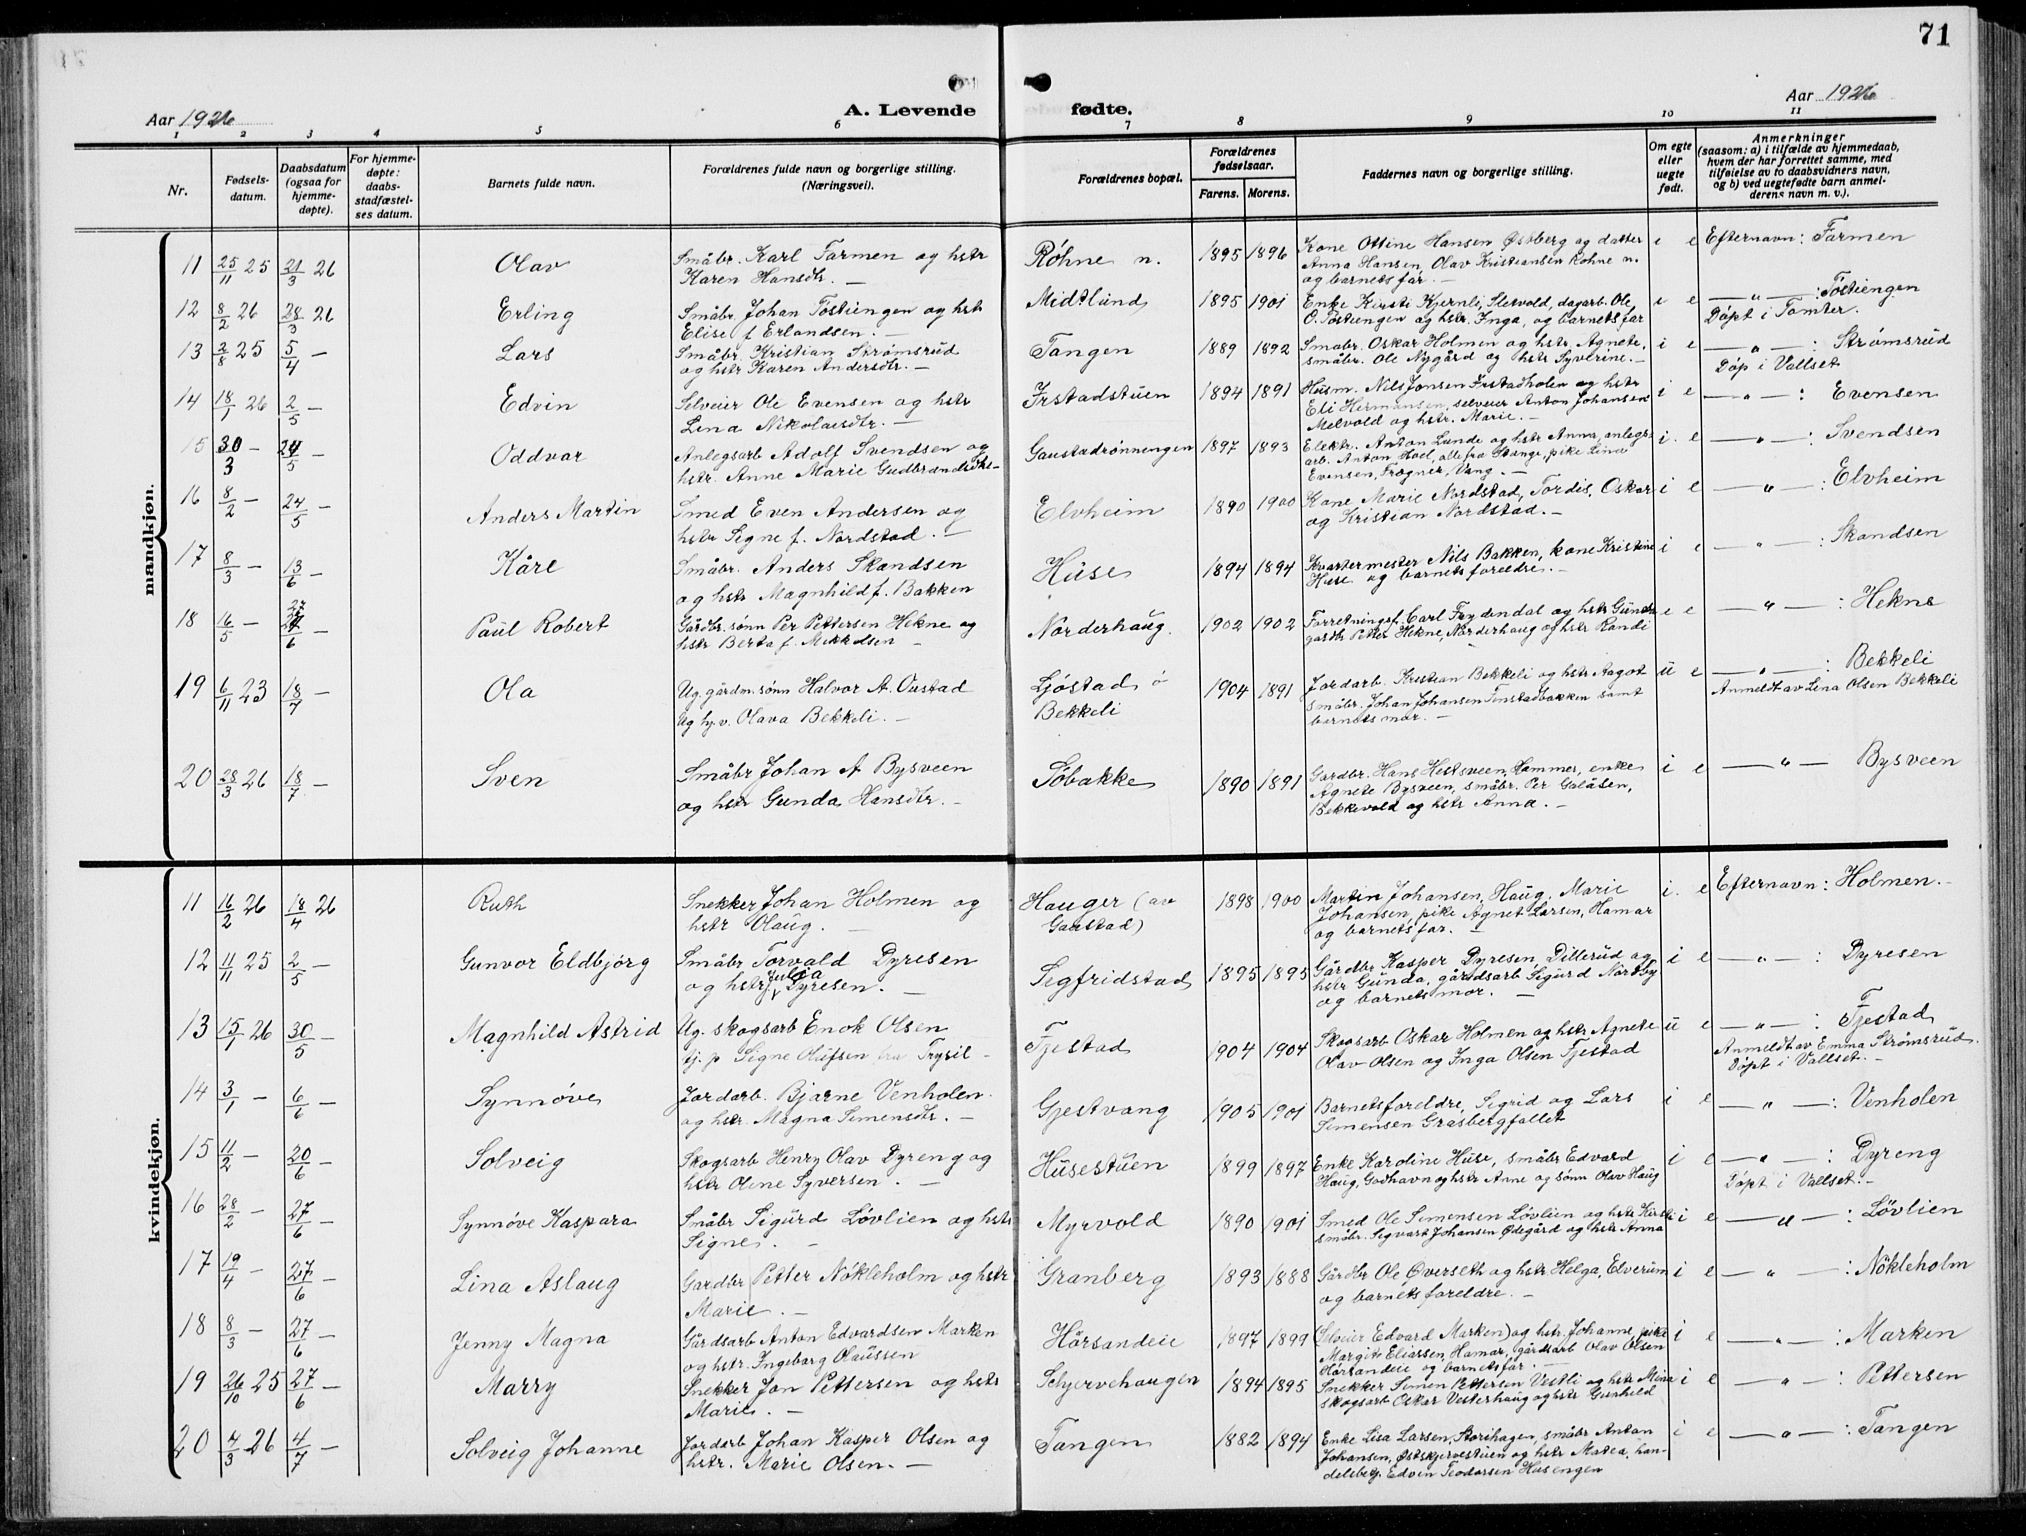 71
Aar 1926
A. Levende fødte.
Aar 1926
1 2 3 4 5 6 7 8 9 10 11
Nr.
Fødsels-
datum.
Daabsdatum
(ogsaa for
hjemme-
døpte).
For hjemme-
døpte:
daabs-
stadfæstel-
ses datum.
Barnets fulde navn.
Forældrenes fulde navn og borgerlige stilling.
(Næringsvei).
Forældrenes bopæl.
Forældrenes
fødselsaar.
Farens. Morens.
Faddernes navn og borgerlige stilling.
Om egte
eller
uegte
født.
Anmerkninger
(saasom: a) i tilfælde av hjemmedaab,
hvem der har forrettet samme, med
tilføielse av to daabsvidners navn,
og b) ved uegtefødte barn anmel-
derens navn m. v.).
mandkjøn.
11 25/11 25 21/3 26 Olav
Småbr. Karl Farmen og hstr
Karen Hansdtr. —
Røhne n. 1895 1896
Kone Ottine Hansen Østberg og datter
Anna Hansen, Olav Kristiansen Røhne n.
og barnets far. —
i e Efternavn: Farmen
12 8/2 26 28/3 26 Erling
Småbr. Johan Tostiengen og hstr
Elise f Erlandsen. —
Midtlund 1895 1901
Enke Kirsti Kjernli, Sletvold, dagarb. Ole
O. Tostiengen og hstr. Inga, og barnets far
i e —"—: Tostiengen
Døpt i Tomter.
13 2/8 25 5/4 — Lars
Småbr. Kristian Strømsrud
og hstr Karen Andersdtr. —
Tangen 1889 1892
Småbr. Oskar Holmen og hstr Agnete,
småbr. Ole Nygård og hstr Syverine. —
i e —"—: Strømsrud
Døp i Vallset
14 18/1 26 2/5 — Edvin
Selveier Ole Evensen og hstr
Lina Nikolaisdtr. —
Frstadstuen 1894 1891
Husm. Nils Jonsen Frstadholen og hstr
Eli Hermansen, selveier Anton Johansen
Melvold og hstr. Marie. —
i e —"—: Evensen
15 30/3 — 24/5 — Oddvar
Anlegsarb Adolf Svendsen og
hstr. Anne Marie Gudbrandsdtr. —
Gaustadrønningen 1897 1893
Elektr. Anton Lunde og hstr Anna, anlegs-
arb. Anton Hoel, alle fra Stange, pike Lina
Evensen, Frogner, Vang. —
i. e —"—: Svendsen
16 8/2 — 24/5 — Anders Martin
Smed Even Andersen og
hstr Signe f. Nordstad. —
Elvheim 1890 1900
Kone Marie Nordstad, Tordis, Oskar
og Kristian Nordstad. —
i e —"—: Elvheim
17 8/3 — 13/6 — Kåre
Småbr. Anders Skandsen
og hstr Magnhild f. Bakken
Huse 1894 1894
Kvartermester Nils Bakken, kone Kristine
Huse og barnets foreldre. —
i e —"—: Skandsen
18 16/5 — 27/6 — Paul Robert
Gårdbr. sønn Per Pettersen Hekne og
hstr Berta f. Mikkelsen —
Norderhaug. 1902 1902
Forretningsf. Carl Frydendal og hstr Gunda
gardbr Petter Hekne, Norderhaug og hstr Randi
e e —"—: Hekne
19 6/11 23 18/7 — Ola
Ug. gårdm. sønn Halvor A. Oustad
Ug hj. v. Olava Bekkeli. —
Ljøstad ø
Bekkeli
1904 1891
Jordarb. Kristian Bekkeli og hstr Aagot
småbr. Johan Johansen Finstadbakken samt
barnets mor. —
u e —"—: Bekkeli
Anmeldt av Lina Olsen Bekkeli
20 28/3 26 18/7 — Sven
Småbr Johan A Bysveen
og hstr Gunda Hansdtr. —
Søbakke 1890 1891
Gardbr. Hans Hestsveen, Hammer, enke
Agnete Bysveen, småbr. Per Galåsen,
Bekkevold og hstr Anna. —
i e —"— Bysveen
kvindekjøn.
11 16/2 26 18/4 26 Ruth
Snekker Johan Holmen og
hstr Olaug. —
Hauger (av
Gaustad)
1898 1900
Martin Johansen, Haug, Marie
Johansen, pike Agnet Larsen, Hamar
og barnets far. —
i. e Efternavn: Holmen. —
12 11/11 25 2/5 — Gunvor Eldbjørg
Småbr Torvald Dyresen
og hstr Julia Dyresen. —
Segfridstad 1895 1895
Gårdbr Kasper Dyresen, Dillerud og
hstr Gunda, gårdsarb Sigurd Nordby
og barnets mor. —
i e —"—: Dyresen
13 15/1 26 30/5 — Magnhild Astrid
Ug. skogsarb Enok Olsen
tj. p Signe Olufsen fra Trysil —
Tjestad 1904 1904
Skogsarb Oskar Holmen og hstr Agnete
Olav Olsen og Inga Olsen Tjestad
u e —"—: Tjestad
Anmeldt av Emma Strømsrud.
Døpt i Vallset. —
14 3/1 — 6/6 — Synnøve
Jordarb. Bjarne Venholen
og hstr. Magna Simensdtr. —
Gjestvang 1905 1901
Barnets foreldre, Sigrid og Lars
Simensen Grasbergfallet
i e —"—: Venholen
15 11/2 — 20/6 — Solveig
Skogsarb Henry Olav Dyreng og
hstr Oline Syversen. —
Husestuen 1899 1897
Enke Karoline Huse, småbr Edvard
Haug, Godhavn og hstr Anne og sønn Olav Haug
i e —"—: Dyreng
Døpt i Vallset. —
16 28/2 — 27/6 — Synnøve Kaspara
Småbr Sigurd Løvlien og hstr
Signe. —
Myrvold 1890 1901
Smed Ole Simensen Løvlien og hstr Kirsti
småbr. Sigvart Johansen Ødegård og hstr Anna
i e —"—: Løvlien
17 19/4 — 27/6 — Lina Aslaug
Gardbr Petter Nøkleholm og hstr
Marie. —
Granberg 1893 1888
Gårdbr Ole Øverseth og hstr Helga, Elverum
og barnets foreldre. —
i e —"—: Nøkleholm
18 8/3 — 27/6 — Jenny Magna
Gårdsarb Anton Edvardsen Marken
og hstr. Ingeborg Olaussen
Hørsandeie 1897 1899
(Selveier Edvard Marken) og hstr. Johanne, pike
Margit Eliassen, Hamar, gårdsarb Olav Olsen
Hørsandeie og barnets far. —
i e —"—: Marken
19 26/10 25 27/6 — Marry
Snekker Jon Pettersen og hstr
Marie. —
Schjervehaugen 1894 1895
Snekker Simen Pettersen Vestli og hstr Mina
skogsarb Oskar Vesterhaug og hstr Gunhild
i e —"—: Pettersen
20 4/3 26 4/7 — Solveig Johanne
Jordarb Johan Kasper Olsen og
hstr. Marie Olsen. —
Tangen 1882 1894
Enke Lisa Larsen, Storihagen, småbr Anton
Johansen, Østskjervestuen og hstr Matea, han-
delsbetj. Edvin Teodorsen Husengen
i e —"—: Tangen